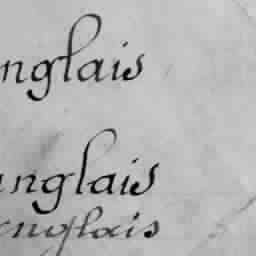 nglais
anglais
anglais